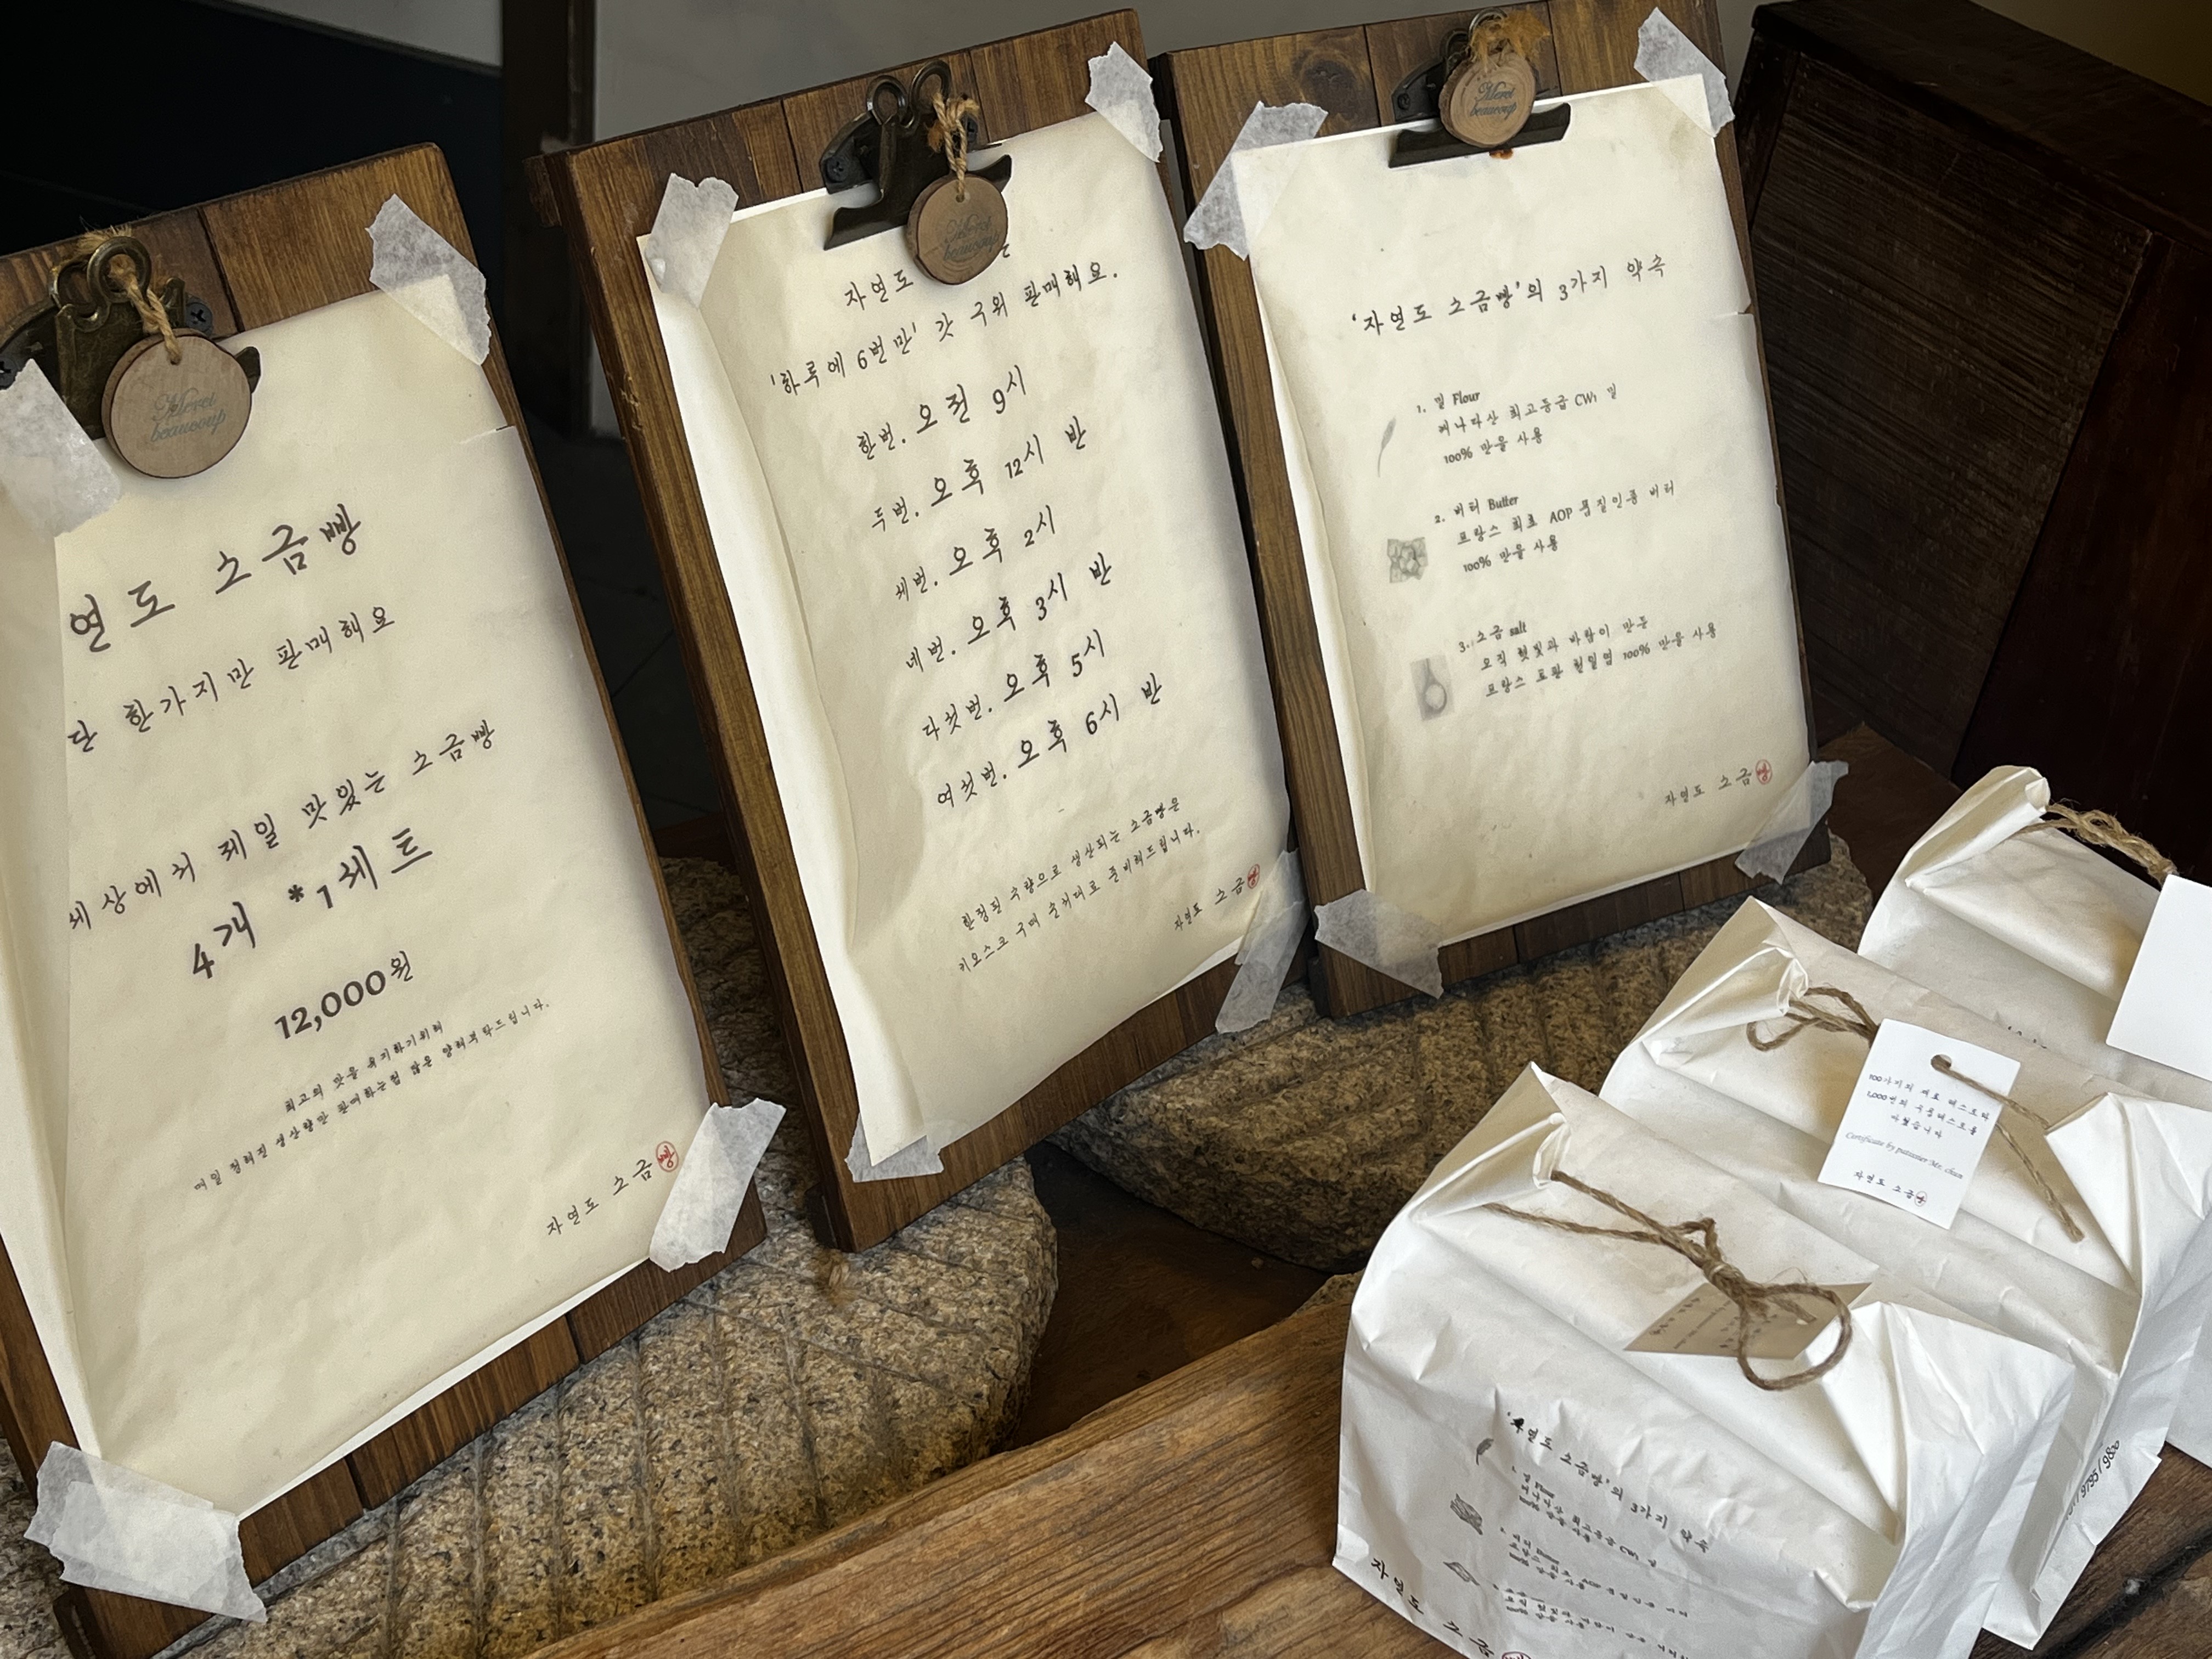 Merci
beaucoup
열도 소금빵
단 한가지만 판매해요
세상에서 제일 맛있는 소금빵
4개 *1세트
12,000원
최고의 맛을 유지하기위해
매일 정해진 생산량만 판매하는점 많은 양해부탁드립니다.
자연도 소금빵
Merci
beaucoup
자연도
'하루에 6번만' 갓 구워 판매해요.
한번. 오전 9시
두번. 오후 12시 반
세번. 오후 2시
네번. 오후 3시 반
다섯번. 오후 5시
여섯번. 오후 6시 반
한정된 수량으로 생산되는 소금빵은
키오스크 구매 순서대로 준비해드립니다.
자연도 소금빵
Merci
beaucoup
'자연도 소금빵'의 3가지 약속
1. 밀 Flour
캐나다산 최고등급 CW1 밀
100% 만을 사용
2. 버터 Butter
프랑스 최초 AOP 품질인증 버터
100% 만을 사용
3. 소금 salt
오직 햇빛과 바람이 만든
프랑스 토판 천일염 100% 만을 사용
자연도 소금빵
100가지의 재료 테스트와
1,000번의 굽기테스트를
마쳤습니다
Certificate by Mr. chun
자연도 소금빵
'자연도 소금빵'의 3가지 약속
자연도 소금빵
9795 / 9800